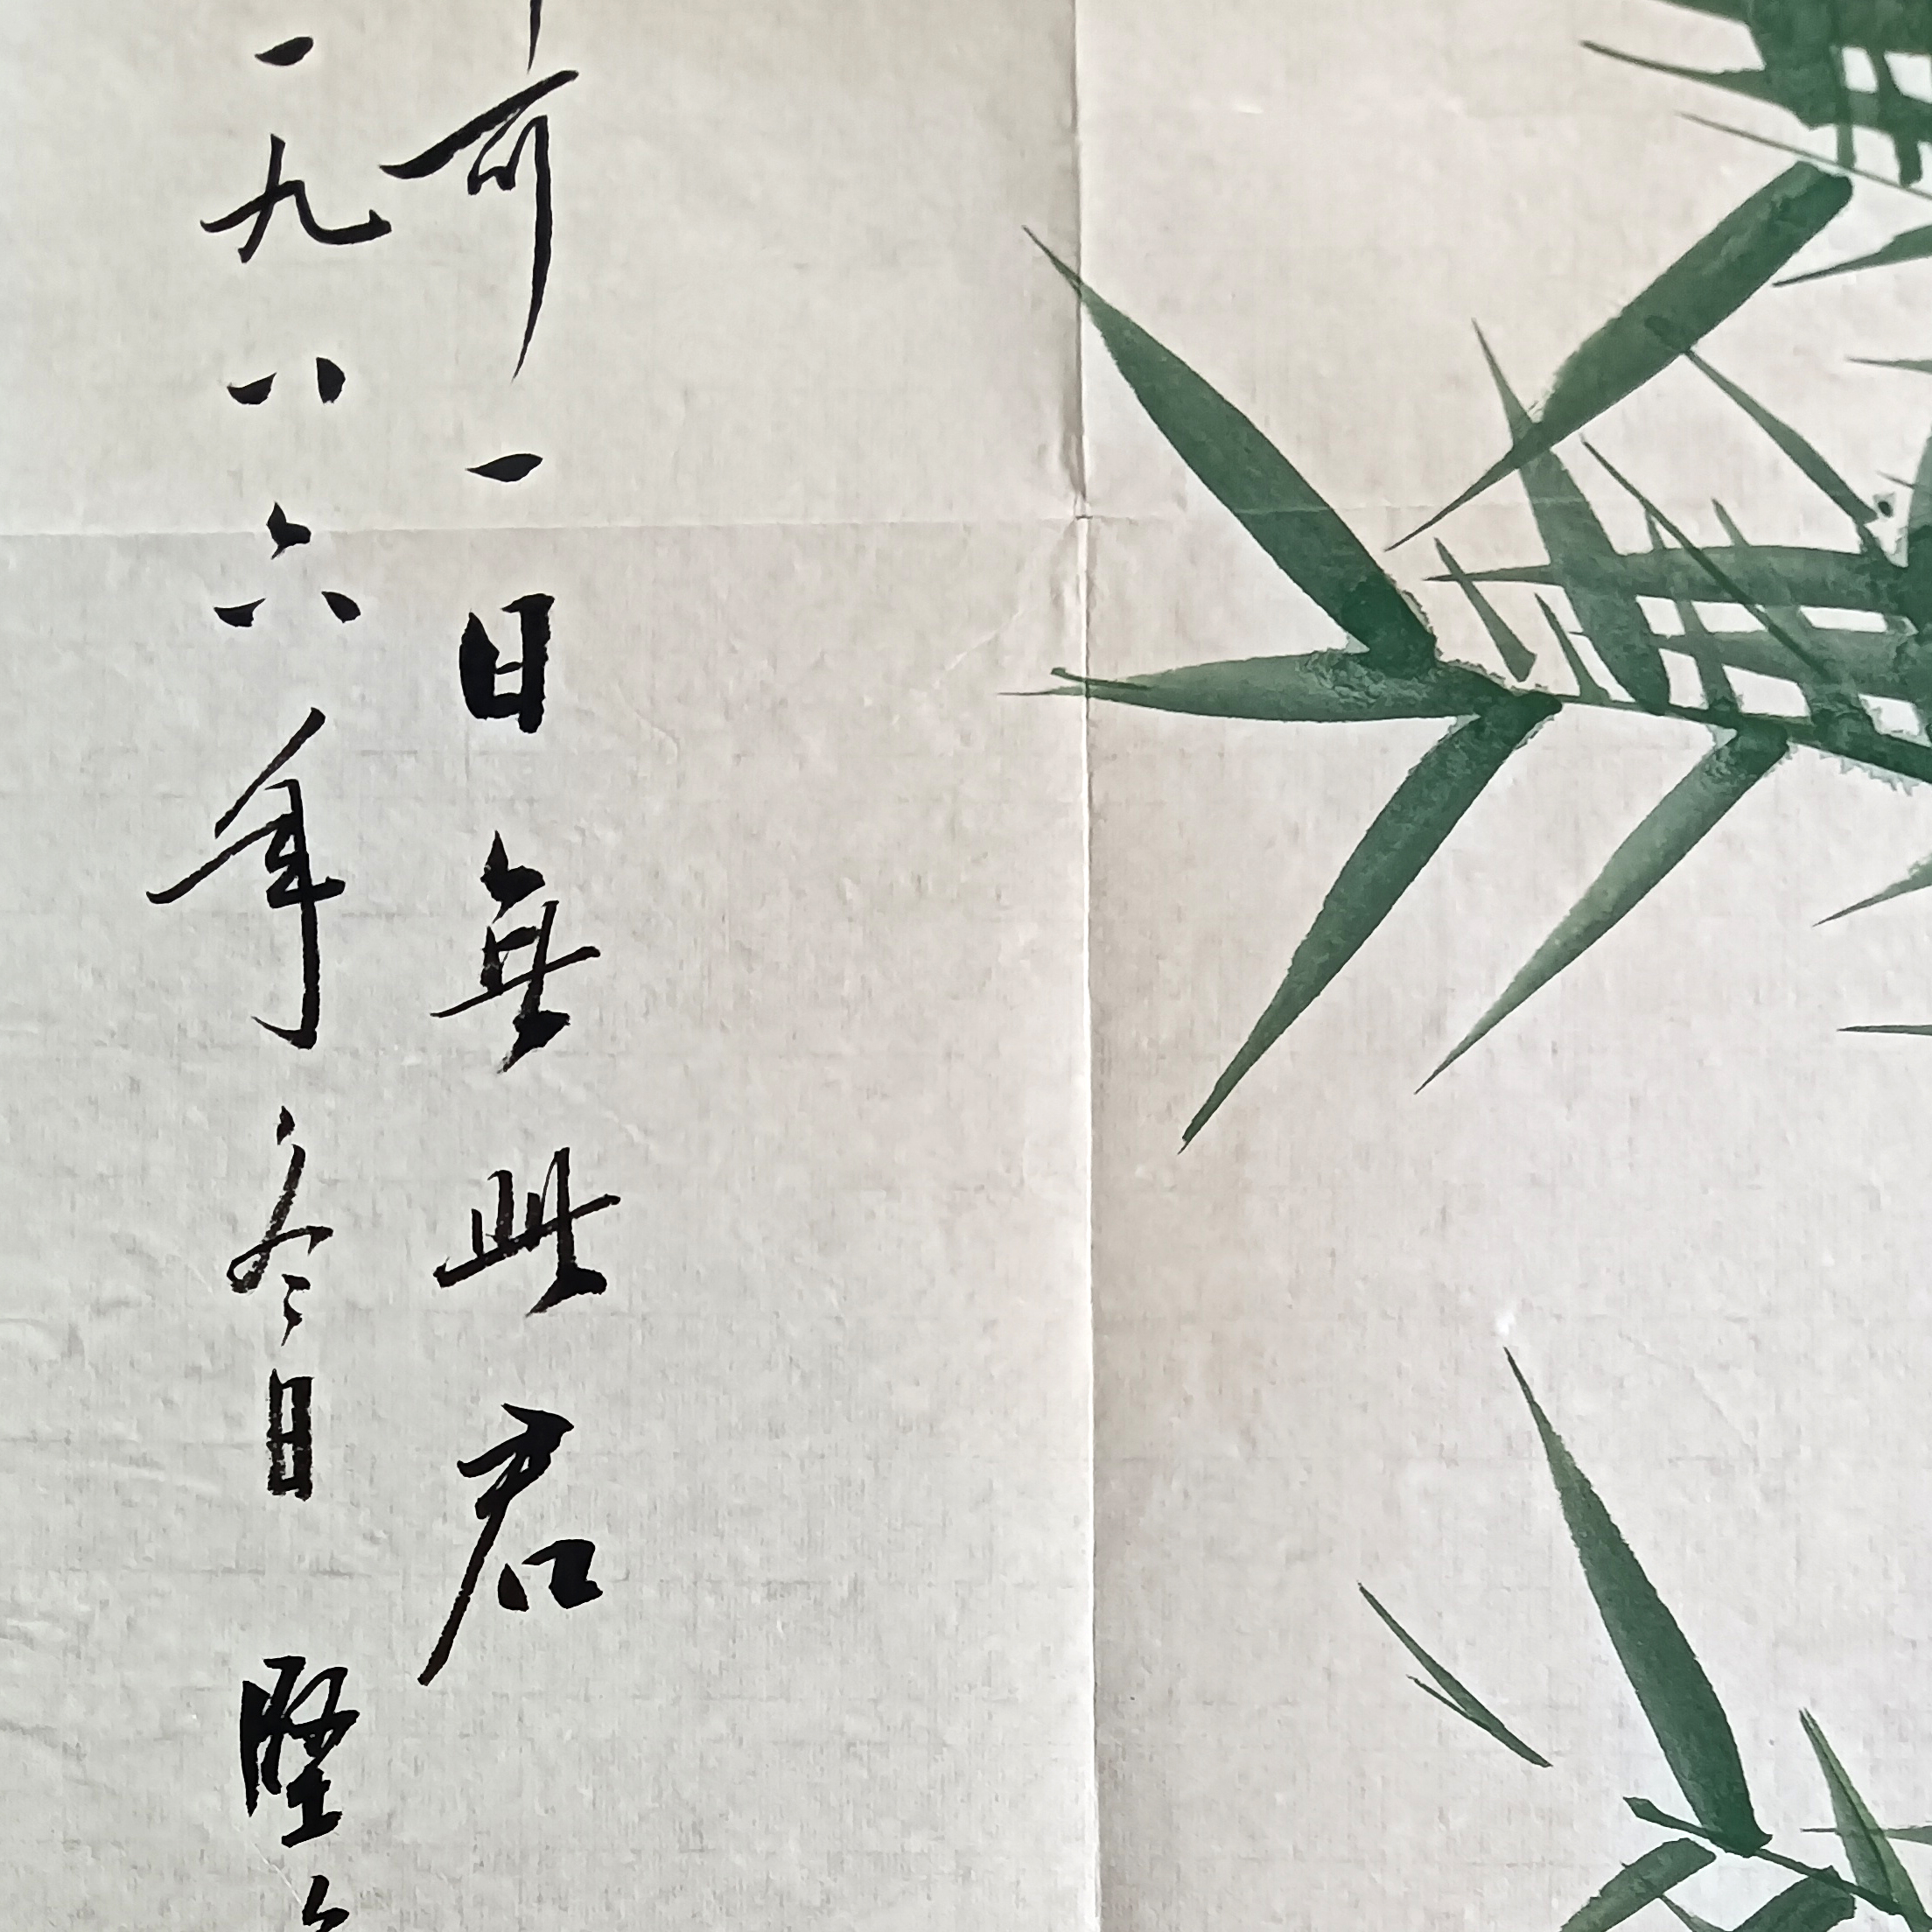 可一日無此君
一九八六年冬日 堅